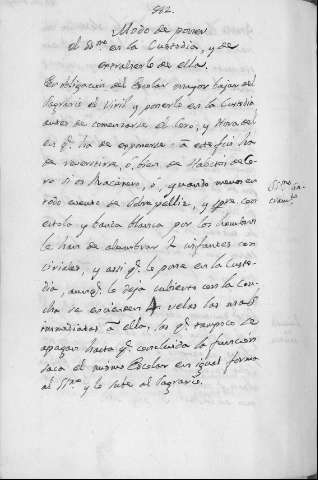 862.
Modo de poner
el SSmo en la Custodia, y de
extraherlo de ella.
Es obligacion del Escolar mayor bajar del
Sagrario el Viril y ponerlo en la Custodia
antes de comenzarse el Coro, y Hora del
en q.e ha de exponerse: à este fin ha
de revestirse, ò bien de Habitos de Co-
ro si es Racionero, ò, quando menos en
todo evento de Sobrepelliz, y spre con
estola y banda blanca por los hombros
le han de alumbrar 2 infantes con
ciriales, y assi q.e le pone en la Custo-
dia, aunq.e le deja cubierto con la Con-
cha se encienden 4 velas las mas
immediatas à ella, las q.e tampoco se
apagan hasta q.e concluida la funcion
saca el mismo Escolar en igual forma
al SSmo y le sube al Sagrario.
SSmo Sa-
cramto